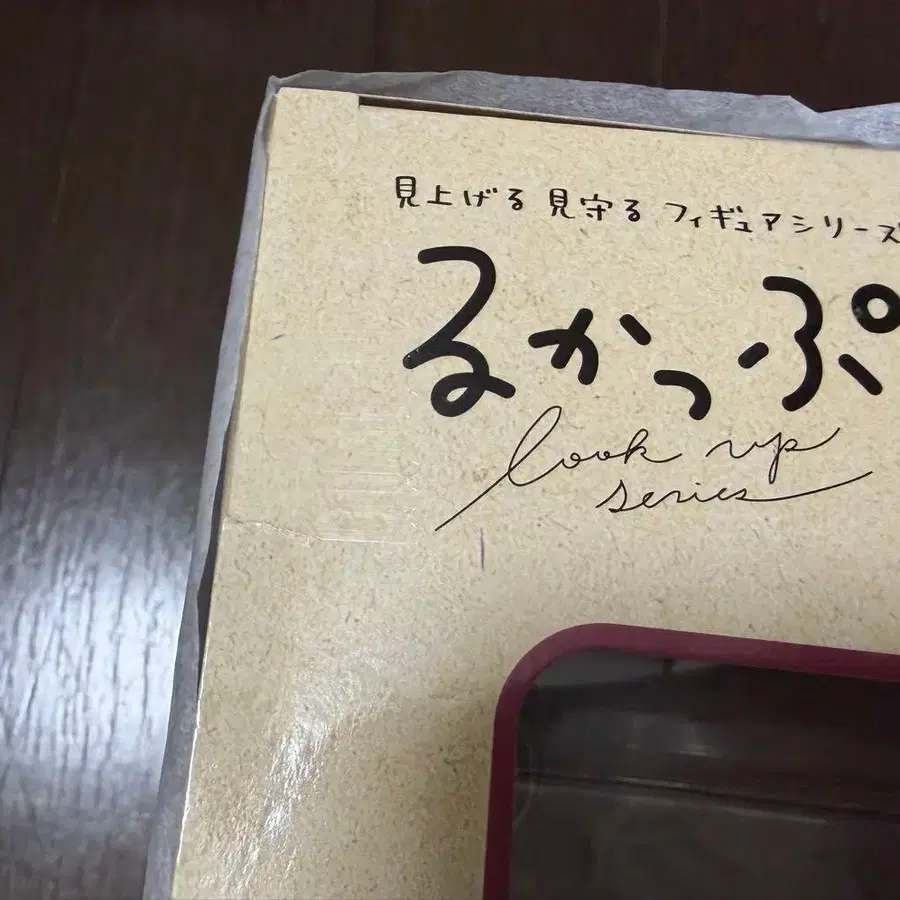 見上げる 見守る フィギュアシリーズ
るかっぷ
look up
series